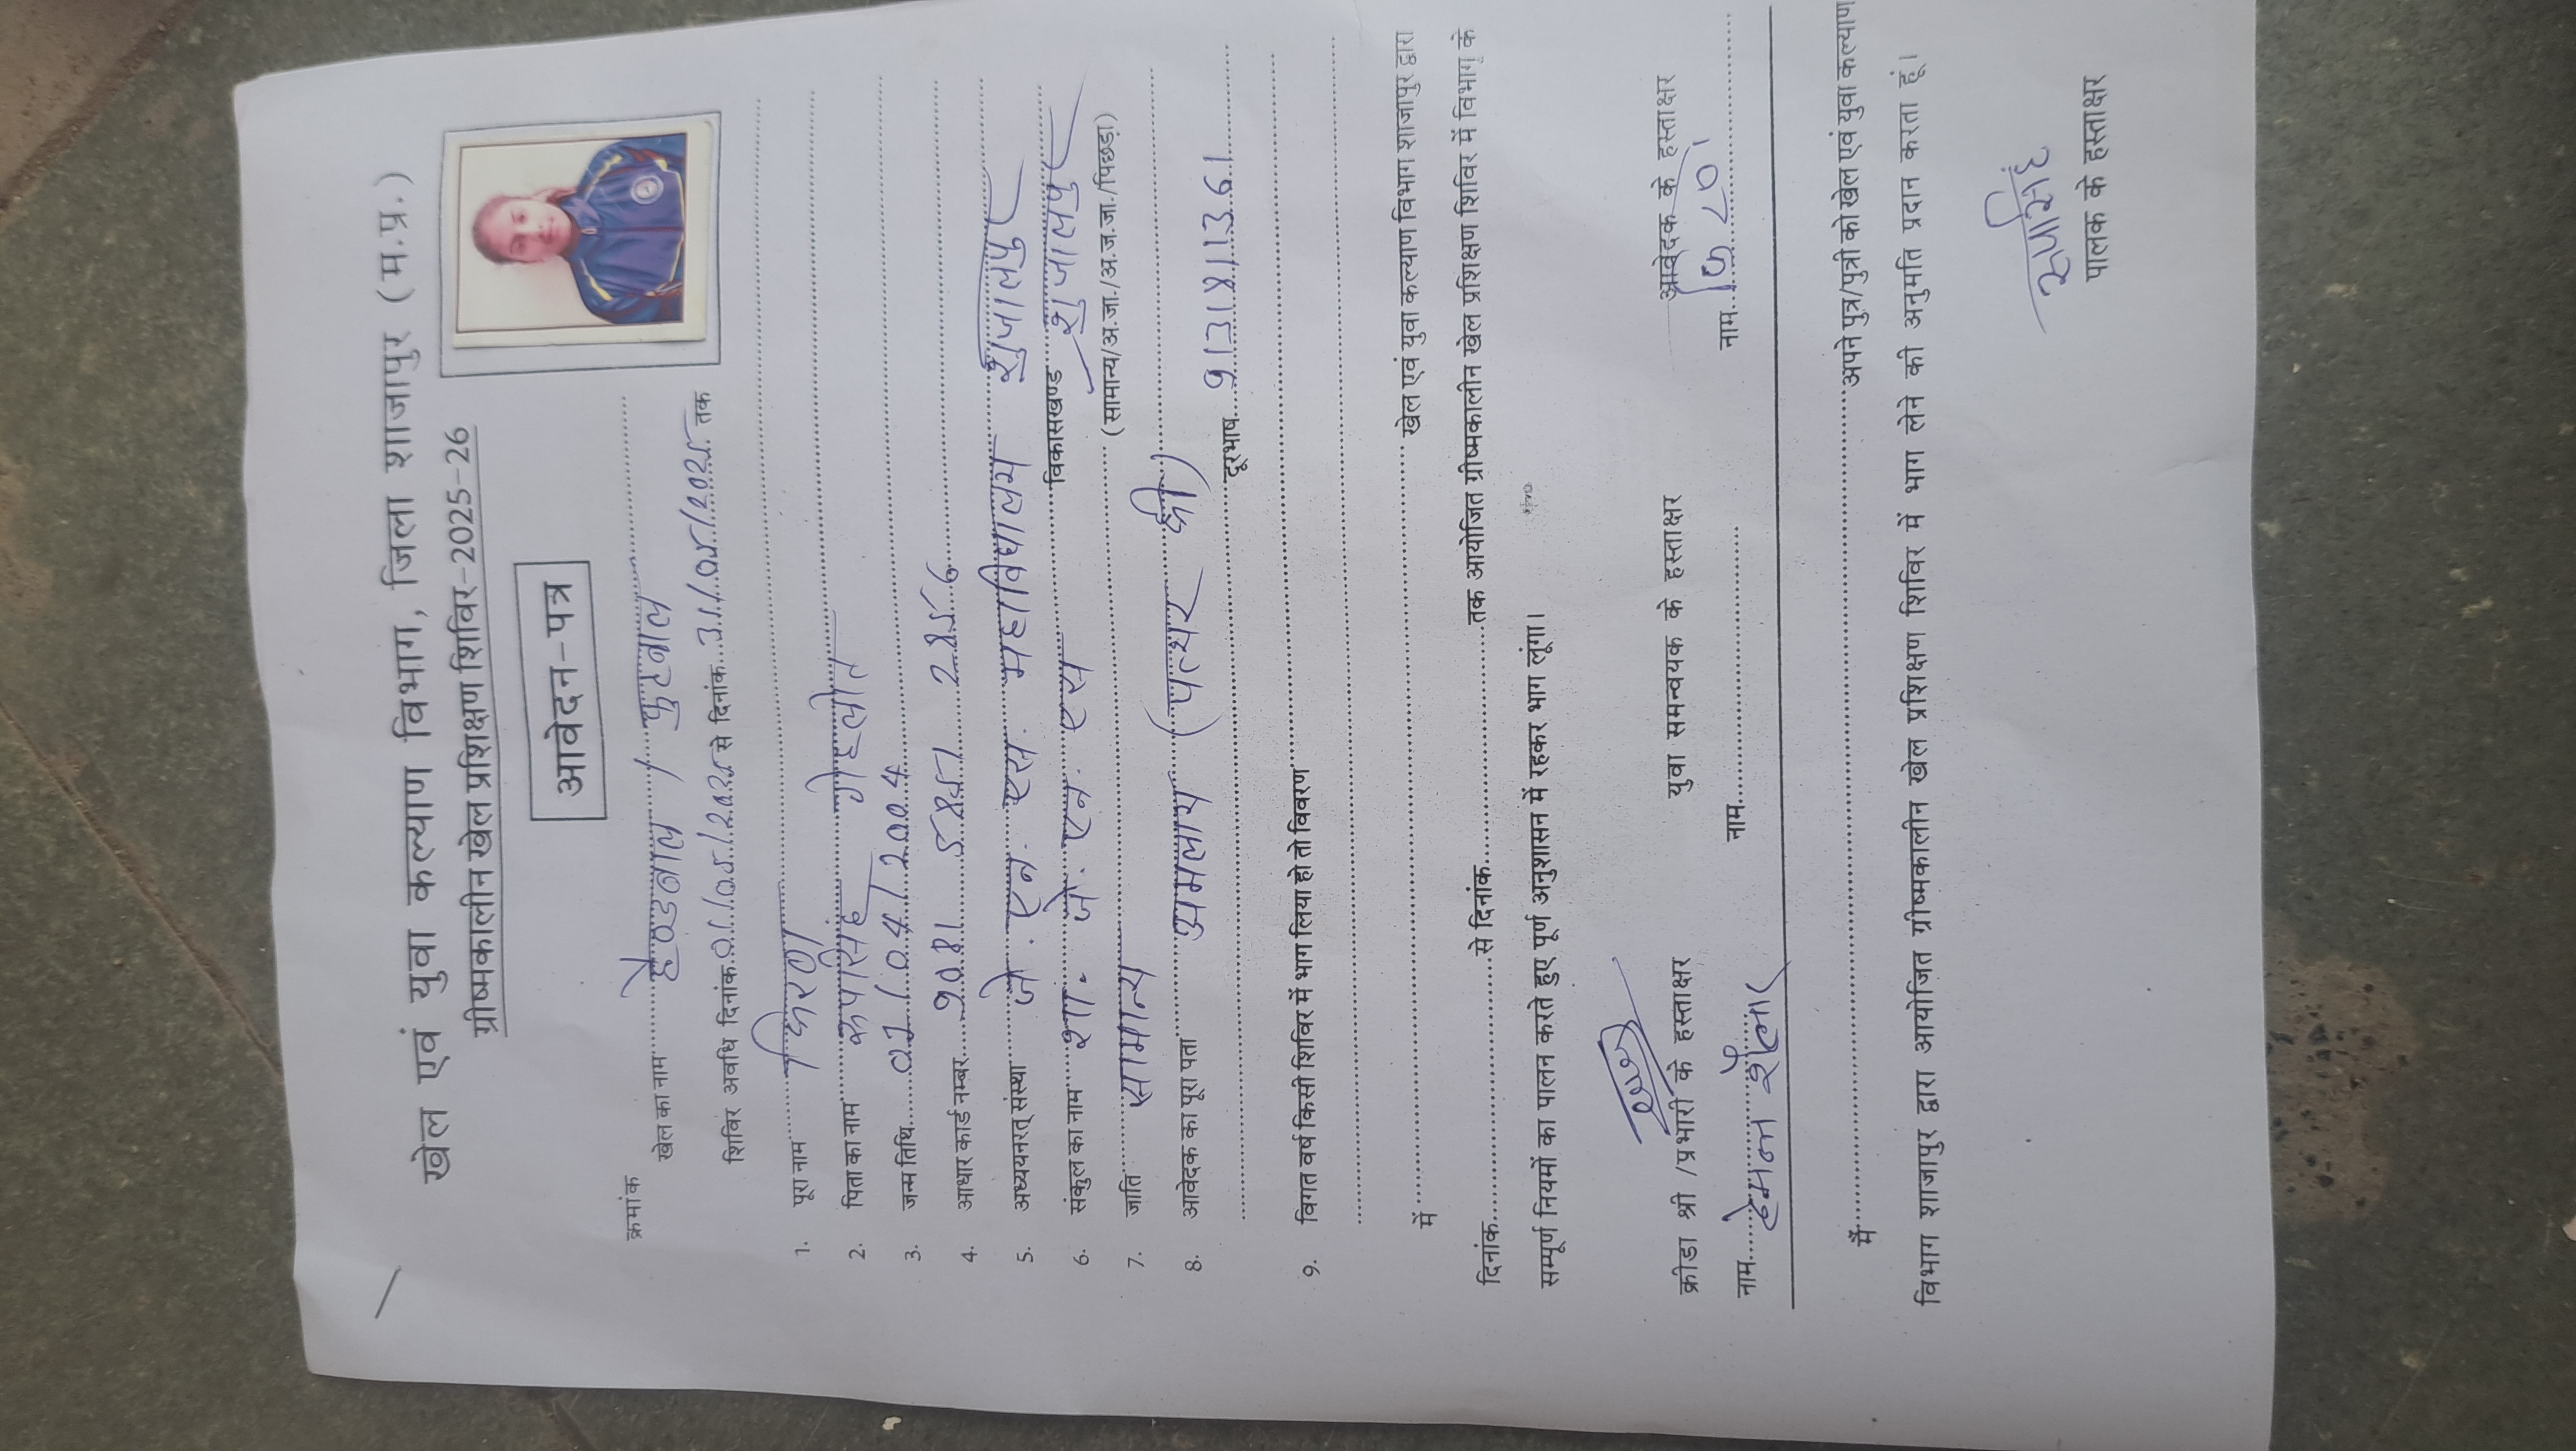 खेल एवं युवा कल्याण विभाग, जिला शाजापुर (म.प्र.)
ग्रीष्मकालीन खेल प्रशिक्षण शिविर-2025-26
आवेदन-पत्र
क्रमांक
खेल का नाम हैण्डबाल / फुटबाल
शिविर अवधि दिनांक 01/05/2025 से दिनांक 31/05/2025 तक
1. पूरा नाम किरण
2. पिता का नाम रूपसिंह गेहलोत
3. जन्म तिथि 01/04/2004
4. आधार कार्ड नम्बर 9081 5851 2856
5. अध्ययनरत् संस्था जे. एन. एस. महाविद्यालय शुजालपुर
6. संकुल का नाम शा. जे. एन. एस विकासखण्ड शुजालपुर
7. जाति सामान्य (सामान्य/अ.जा./अ.ज.जा./पिछड़ा)
8. आवेदक का पूरा पता अमलाय (पत्थर की)
दूरभाष 9131811361
9. विगत वर्ष किसी शिविर में भाग लिया हो तो विवरण
में खेल एवं युवा कल्याण विभाग शाजापुर द्वारा
दिनांक से दिनांक तक आयोजित ग्रीष्मकालीन खेल प्रशिक्षण शिविर में विभाग के
सम्पूर्ण नियमों का पालन करते हुए पूर्ण अनुशासन में रहकर भाग लूंगा।
क्रीडा श्री /प्रभारी के हस्ताक्षर युवा समन्वयक के हस्ताक्षर आवेदक के हस्ताक्षर
नाम हेमन्त नाम नाम किरण
मैं अपने पुत्र/पुत्री को खेल एवं युवा कल्याण
विभाग शाजापुर द्वारा आयोजित ग्रीष्मकालीन खेल प्रशिक्षण शिविर में भाग लेने की अनुमति प्रदान करता हूं।
रूपसिंह
पालक के हस्ताक्षर